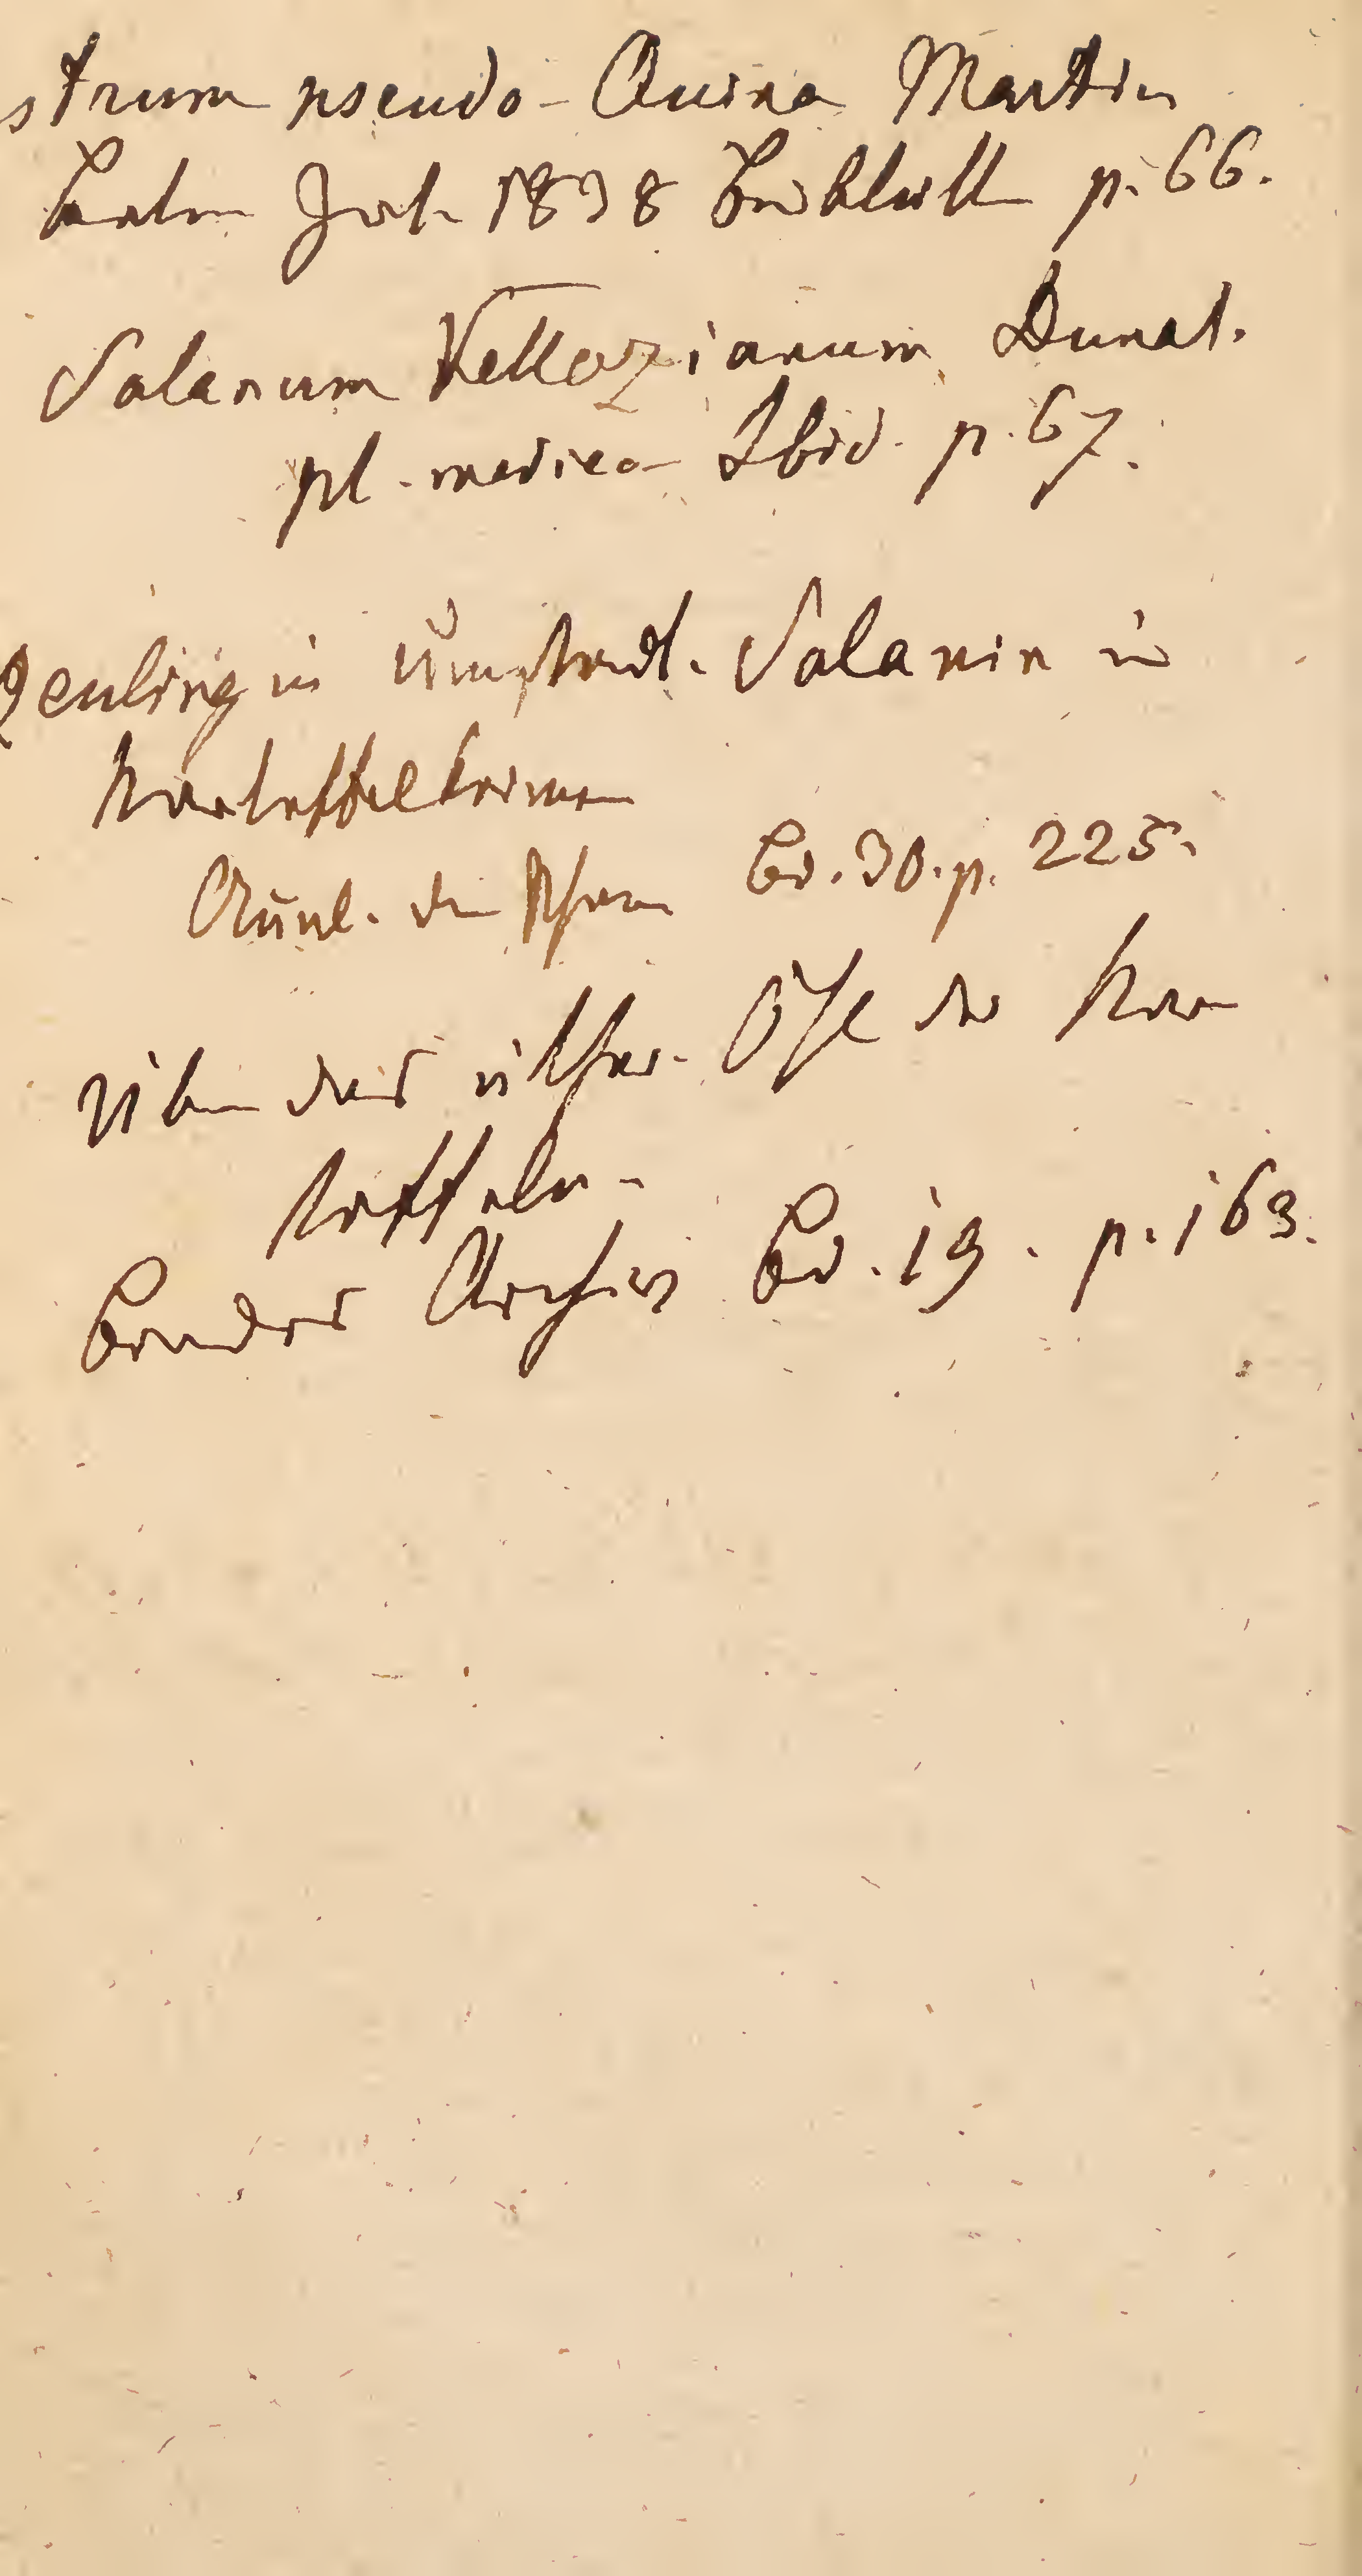 strum pseudo-Quina Martius
Berlin Jarb 1838 p. 66.
Solanum Vellozianum Dunal.
pl. medica Ibid. p. 67.
Solanin in
Kartoffelkeimen
Annal. der Pharm Bd. 30. p. 225.
Über das äther. Öhl der Kar
toffeln.
Brandes Archiv Bd. 19. p. 169.